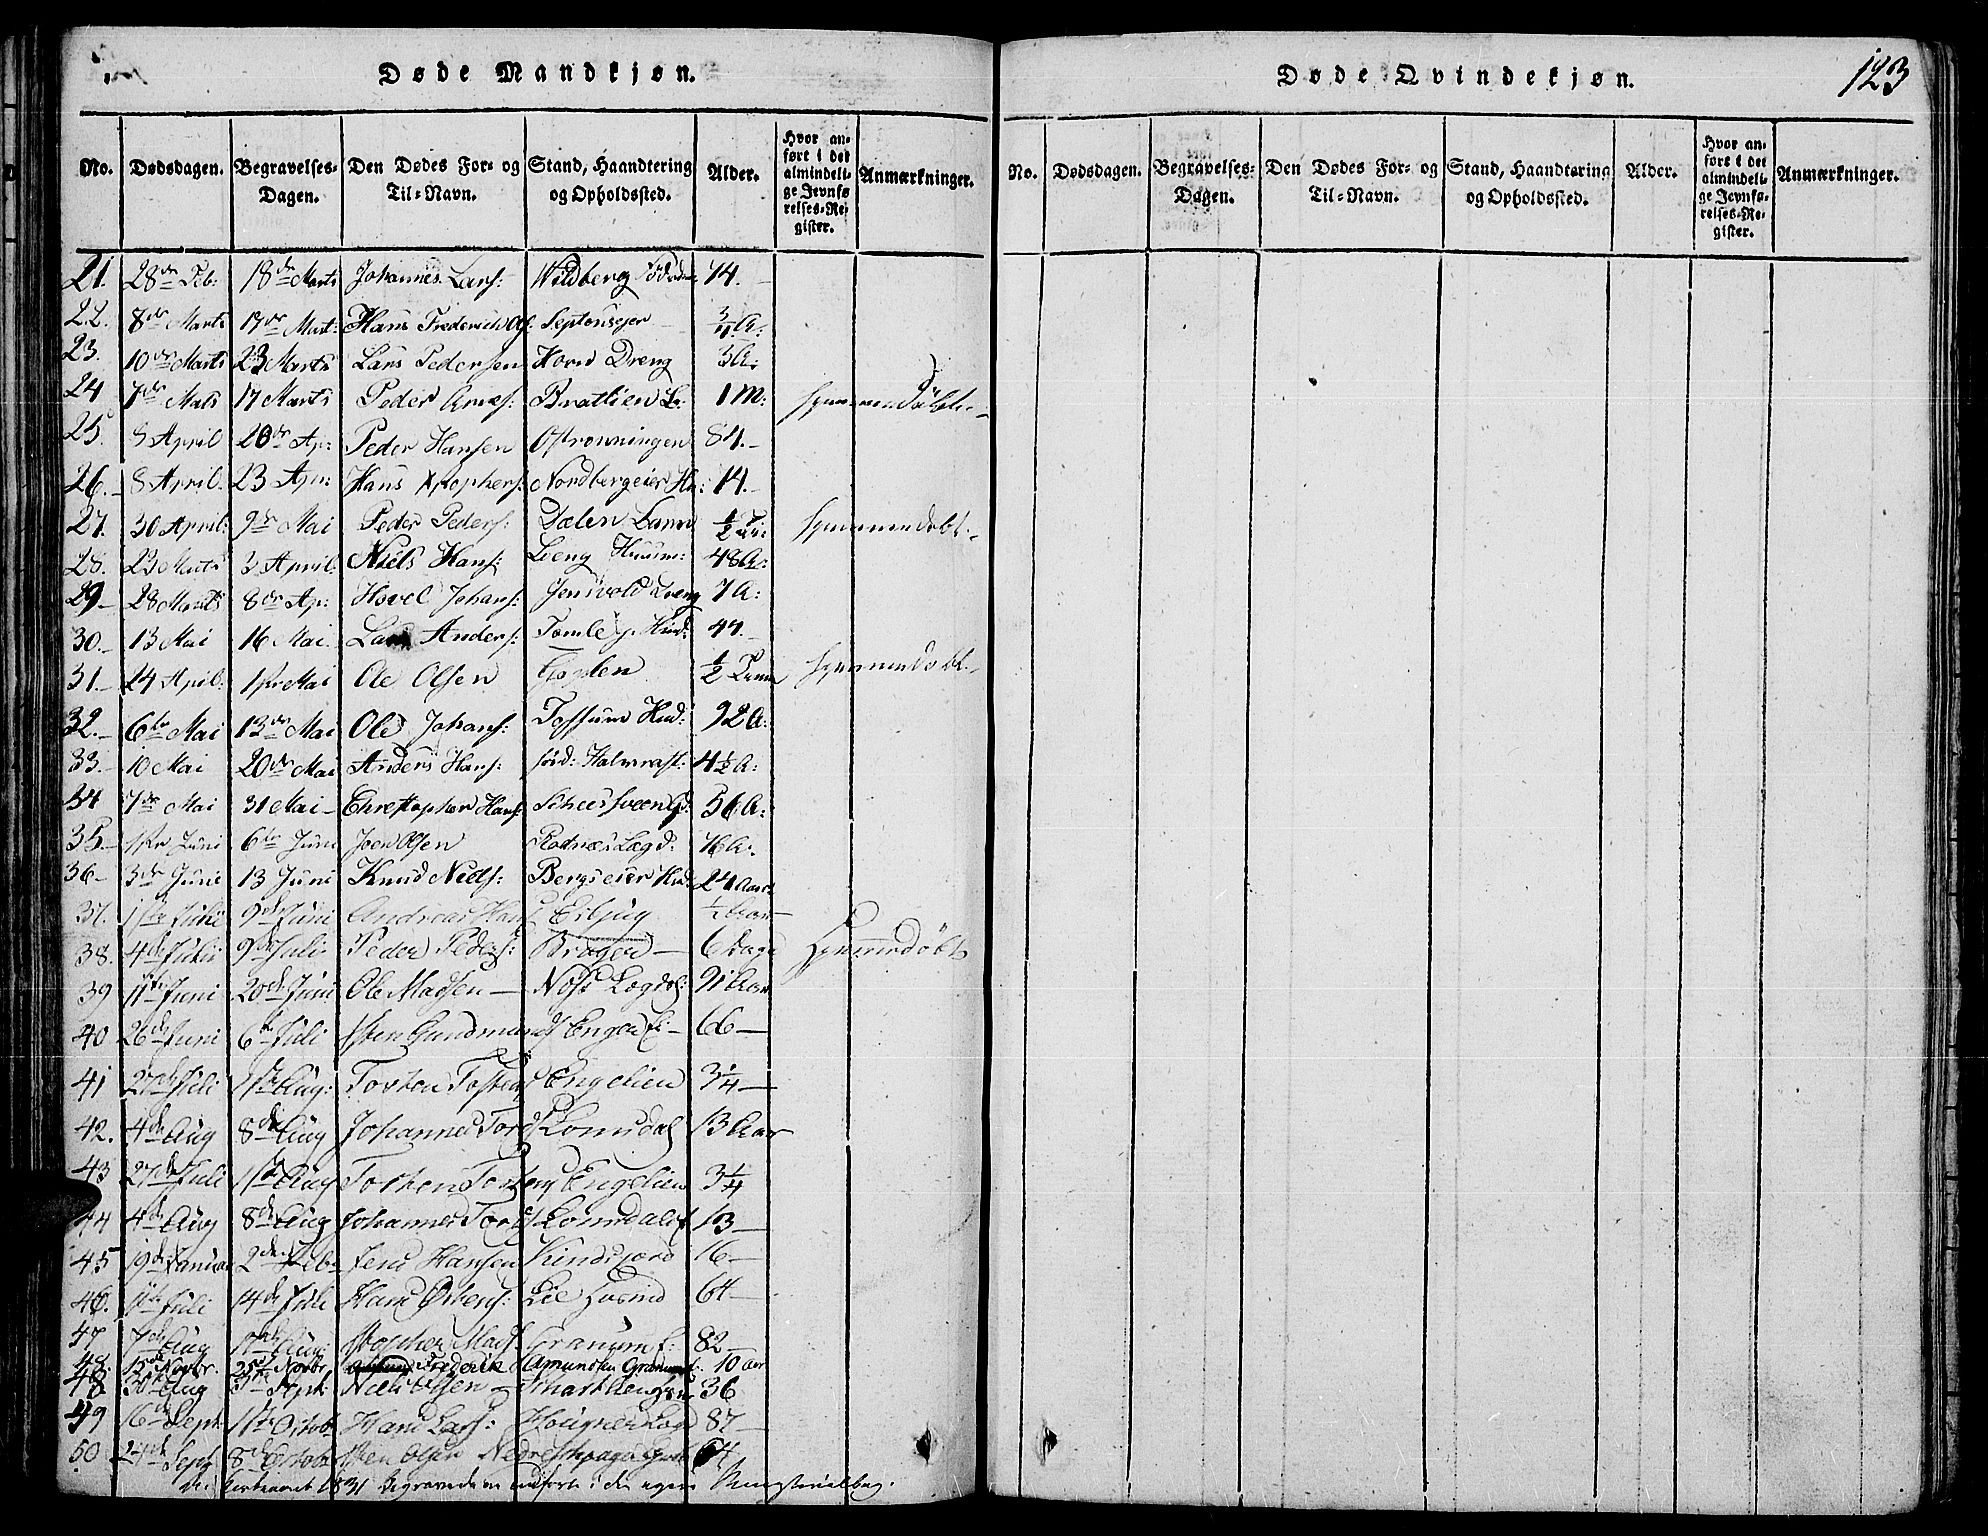 Døde Mandkjøn.
No. Dødsdagen. Begravelses-Dagen. Den Dødes For- og Til-Navn. Stand, Haandtering og Opholdssted. Alder. Hvor anført i det almindelige Jevnførelses-Register. Anmærkninger.
21. 28de Feb: 18de Marts Johannes Lars: Wildberg 74.
22. 8de Marts 17de Mart: Hans Frederich Septonsejer 3/4 A:
23. 10de Marts 23 Marts Lars Pedersen Horn Dreng 3 A:
24 7de Mats 17 Marts Peder Arnes: Brattlien 1 M: hjemmedöbt
25. 8 April 20de Ap: Peder Hansen Ofrönningen 84.
26. 8 April. 23 Apr: Hans Xstophers: Nordbergeier 14.
27. 30 April: 9de Mai Peder Peders: Dælen 1/2 hjemmedöbt.
28. 23 Marts 3 April. Niels Hans: Loeng Huusm: 48 A:
29 28 Marts 8de Ap: Hovel Johans: Dreng 7 A:
30. 13 Mai 16 Mai. Lars Anders: Tomle 47.
31. 24 April: 1ste Mai Ole Olsen 1/2 hjemmedöbt.
32. 6te Mai 13de Mai Ole Johans: Tossum 92 A:
33. 10 Mai 20de Mai Anders Hans: 4 1/2 A:
34 7de Mai 31 Mai Christopher Hans: 56 A:
35. 1ste Juni 6te Juni Joen Olsen Rodnæs Lægd: 76 A:
36 3de Juni 13 Juni Knud Niels: Bergseier 24 Aar
37. 1ste Juni 9de Juni Andreas Hans 1/2 Aar
38. 4de Julii 9de Juli. Peder Peders: Bragen 6 Dage hjemmedöbt
39 11te Juni 20de Juni Ole Madsen Nøss Lægdsl: 91 Aar
40 26de Juni 6te Juli Sten Gudmunds Engen E: 66
41 27de Juli 1ste Aug: Tosten Tostens Engelien 3 1/4
42. 4de Aug 8de Aug Johannes Tords Lomsdal 13 Aar
43 27de Juli 1ste Aug Tosten Tostens Engelien 3 1/4
44 4de Aug 8de Aug Johannes Tords Lomsdal 13
45 19de Januar 2de Feb. Jens Hansen Kindsjord 16
46. 11te Juli 14de Juli Hans Østens: Lie 64
47 7de Aug Aug: Xstopher Mads: Granum 82
48 15de Novbr. 25de Novbr Frederik Amundsen Granum 10 Aar
48 30te Aug 3de Sept: Niels Olsen 36
49 16de Sept: 11te Octob: Hans Lars: Hougner Lægd 87
50 24de Sept 8de Octob: Sten Olsen Nedre 64
1831 Begravede ere anførte i den nyere Ministerialbog.
Døde Qvindekjøn.
123
No. Dødsdagen. Begravelses-Dagen. Den Dødes For- og Til-Navn. Stand, Haandtering og Opholdssted. Alder. Hvor anført i det almindelige Jevnførelses-Register. Anmærkninger.